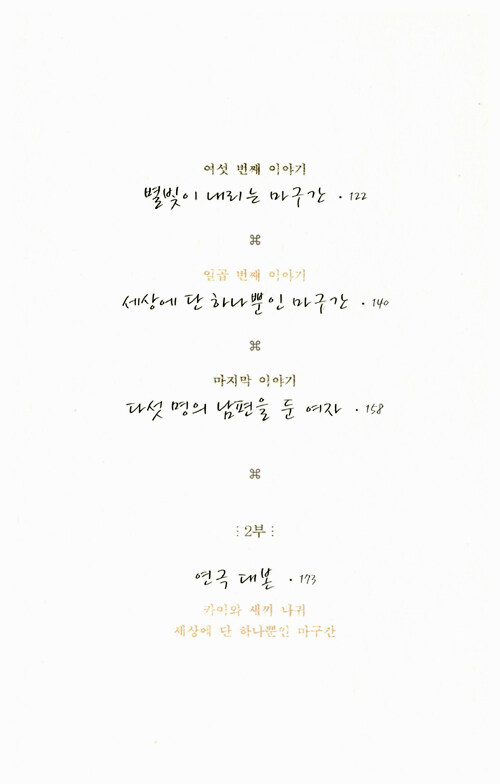 여섯 번째 이야기
별빛이 내리는 마구간 · 122
⌘
일곱 번째 이야기
세상에 단 하나뿐인 마구간 · 140
⌘
마지막 이야기
다섯 명의 남편을 둔 여자 · 158
⌘
⋮ 2부 ⋮
연극 대본 · 173
카이와 새끼 나귀
세상에 단 하나뿐인 마구간